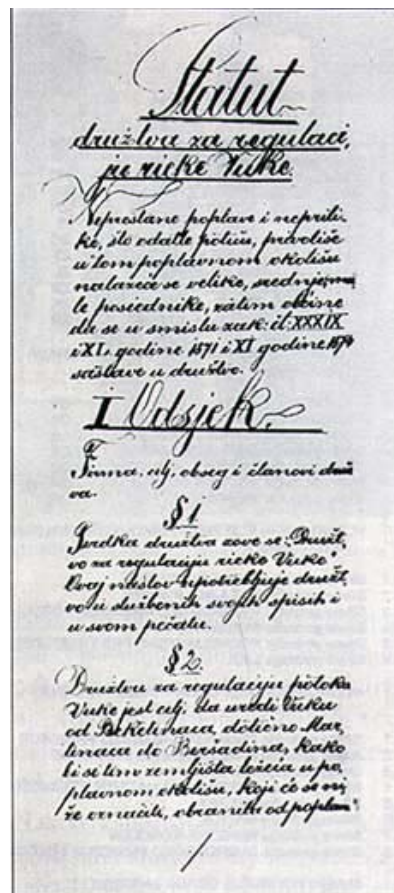 Statut
družtva za regulaci,
je rieke Vuke.
Neprestane poplave i neprili-
ke, što odatle potiču, privoliše
u tom poplavnom okolišu
nalazeće se velike, srednje, ma
le posjednike, zatim obćine
da se u smislu zak: čl: XXXIX
i XL. godine 1871 i XI godine 1874
sastave u družtvo.
I Odsjek.
Firma, cilj, obseg i članovi druž
va.
§ 1
Tvrdka družtva zove se: "Družt,
vo za regulaciju rieke Vuke"
Ovaj naslov upotrebljuje družt,
vo u službenih svojih spisih i
u svom pečatu.
§ 2.
Družtvu za regulaciju potoka
Vuke jest cilj, da uredi Vuku
od Beketinaca, dotično Mar,
tinaca do Bersadina, kako
bi se tim zemljišta ležeća u po,
plavnom okolišu, koji će se ni,
že označiti, obranila od poplave